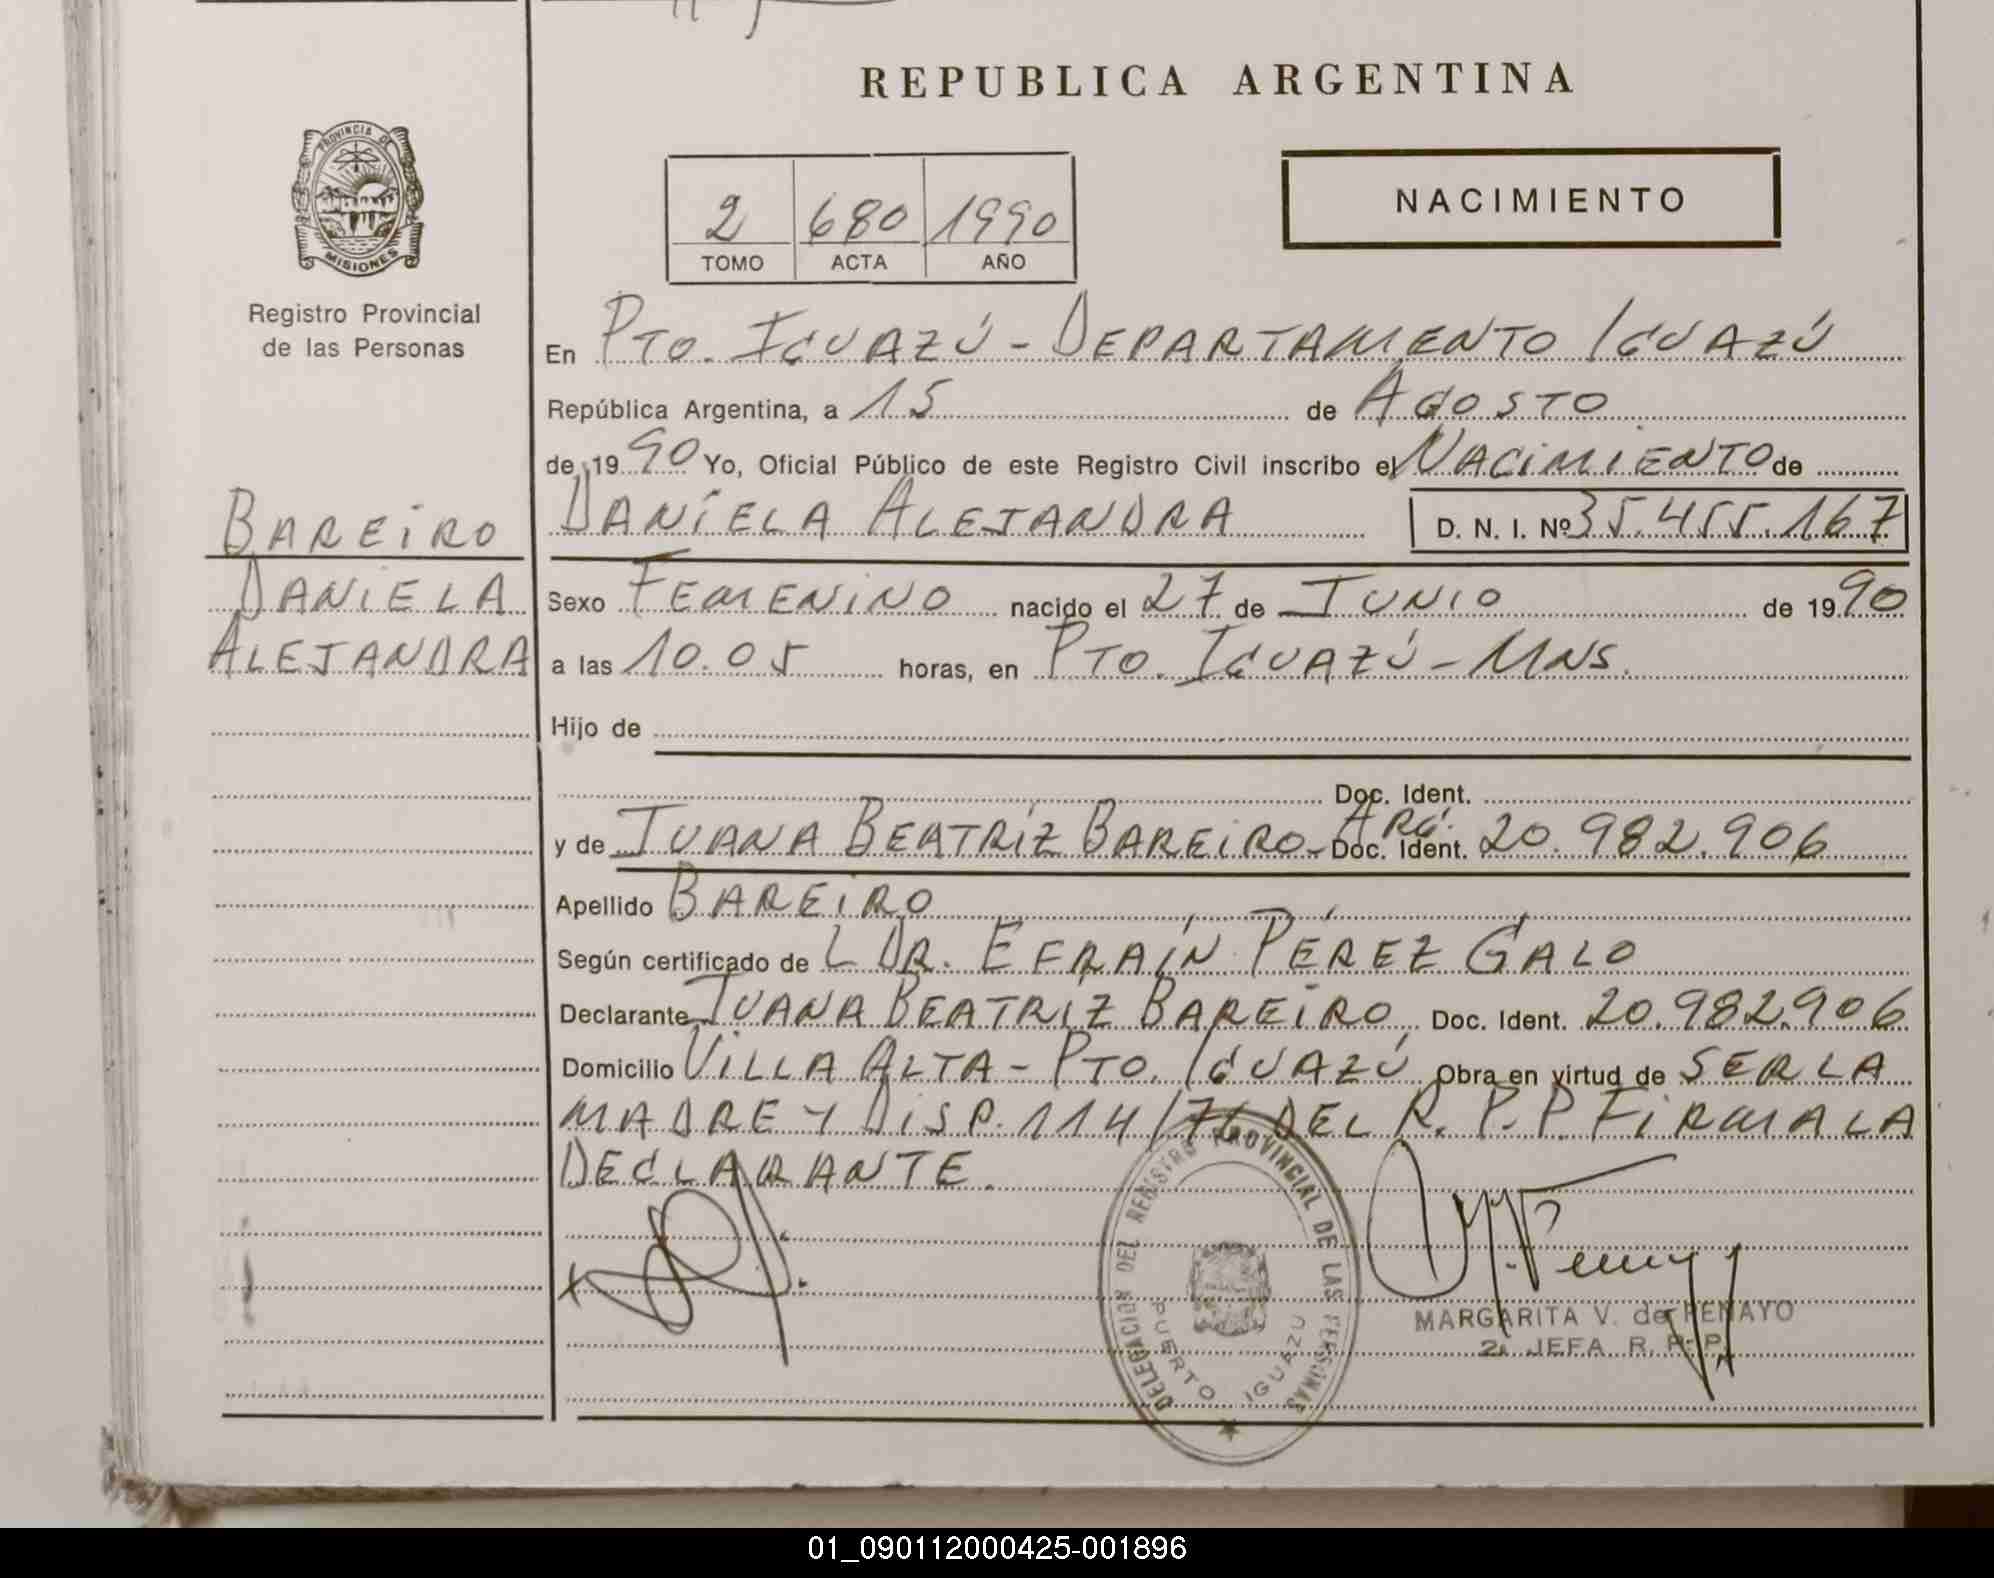 REPUBLICA ARGENTINA
PROVINCIA DE
MISIONES
Registro Provincial
de las Personas
2 680 1990
TOMO ACTA AÑO
NACIMIENTO
En PTO. IGUAZÚ - DEPARTAMENTO IGUAZÚ
República Argentina, a 15 de AGOSTO
de 19 90 Yo, Oficial Público de este Registro Civil inscribo el NACIMIENTO de
BAREIRO
DANIELA ALEJANDRA D. N. I. Nº 35.455.167
DANIELA
Sexo FEMENINO nacido el 27 de JUNIO de 19 90
ALEJANDRA
a las 10.05 horas, en PTO. IGUAZÚ - MNS.
Hijo de
Doc. Ident.
y de JUANA BEATRÍZ BAREIRO - Doc. Ident. ARG. 20.982.906
Apellido BAREIRO
Según certificado de L DR. EFRAÍN PÉREZ GALO
Declarante JUANA BEATRÍZ BAREIRO Doc. Ident. 20.982.906
Domicilio VILLA ALTA - PTO. IGUAZÚ Obra en virtud de SER LA
MADRE Y DISP. 114/76 DEL R. P. P. FIRMA LA
DECLARANTE.
DELEGACION DEL REGISTRO PROVINCIAL DE LAS PERSONAS
PUERTO IGUAZU
MARGARITA V. de PENAYO
2ª JEFA R. P. P.
01_090112000425-001896